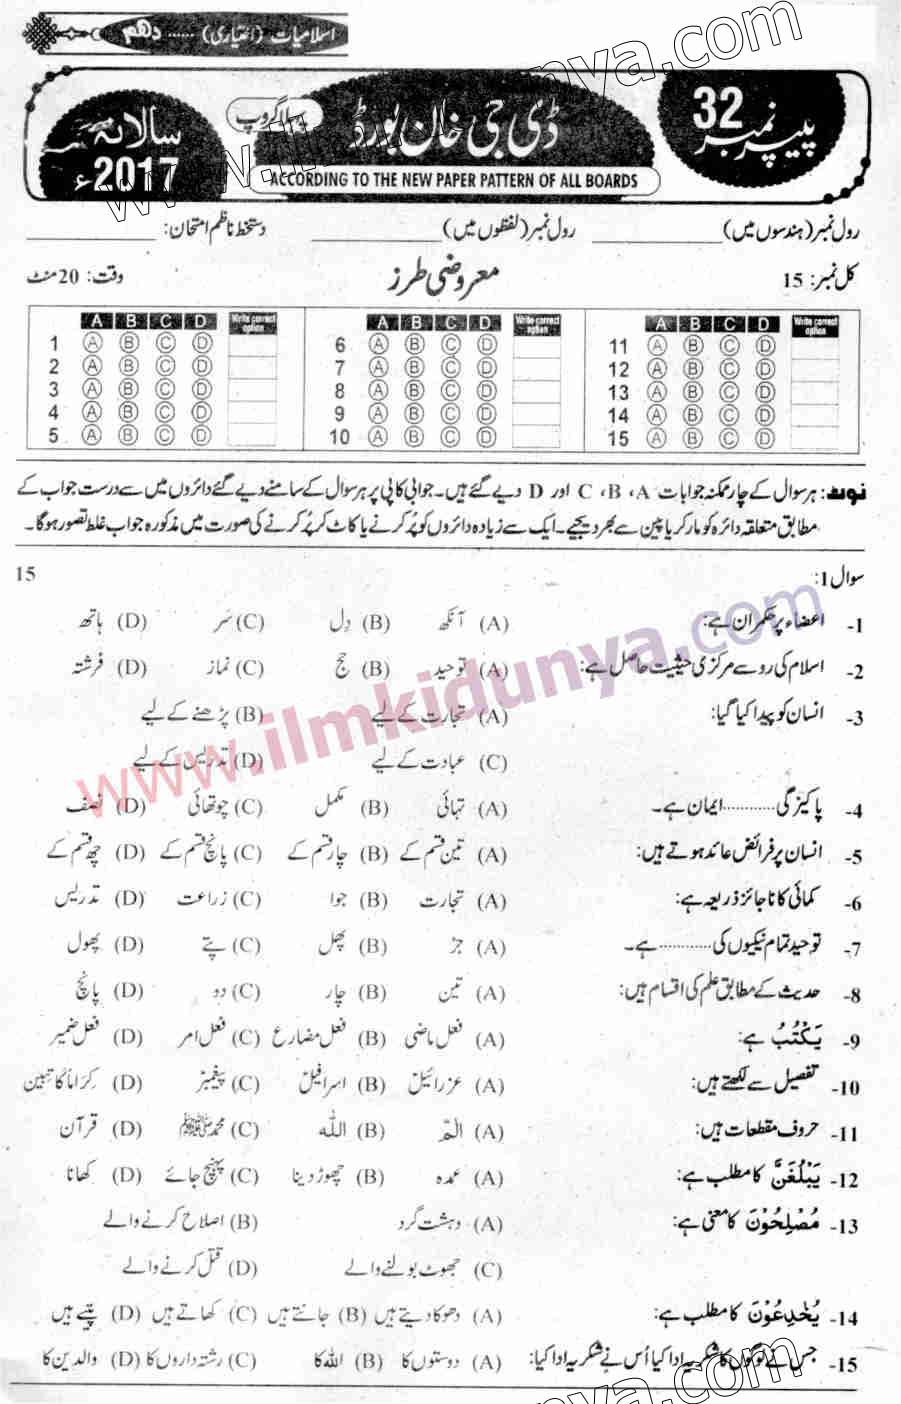 اسلامیات (اختیاری) ...... دھم
پیپر نمبر 32
ڈی جی خان بورڈ
پہلا گروپ
سالانہ 2017ء
ACCORDING TO THE NEW PAPER PATTERN OF ALL BOARDS
رول نمبر (ہندسوں میں) ____________ رول نمبر (لفظوں میں) ____________ دستخط ناظم امتحان: ____________
کل نمبر: 15 معروضی طرز وقت: 20 منٹ
A B C D Write correct option A B C D Write correct option A B C D Write correct option
1 A B C D 6 A B C D 11 A B C D
2 A B C D 7 A B C D 12 A B C D
3 A B C D 8 A B C D 13 A B C D
4 A B C D 9 A B C D 14 A B C D
5 A B C D 10 A B C D 15 A B C D
نوٹ: ہر سوال کے چار ممکنہ جوابات A، B، C اور D دیے گئے ہیں۔ جوابی کاپی پر ہر سوال کے سامنے دیے گئے دائروں میں سے درست جواب کے
مطابق متعلقہ دائرہ کو مارکر یا پین سے بھر دیجیے۔ ایک سے زیادہ دائروں کو پُر کرنے یا کاٹ کر پُر کرنے کی صورت میں مذکورہ جواب غلط تصور ہوگا۔
سوال 1: 15
1- اعضاء پر حکمران ہے: (A) آنکھ (B) دِل (C) سَر (D) ہاتھ
2- اسلام کی رو سے مرکزی حیثیت حاصل ہے: (A) توحید (B) حج (C) نماز (D) فرشتہ
3- انسان کو پیدا کیا گیا: (A) تجارت کے لیے (B) پڑھنے کے لیے
(C) عبادت کے لیے (D) تدریس کے لیے
4- پاکیزگی ........... ایمان ہے۔ (A) تہائی (B) مکمل (C) چوتھائی (D) نصف
5- انسان پر فرائض عائد ہوتے ہیں: (A) تین قسم کے (B) چار قسم کے (C) پانچ قسم کے (D) چھ قسم کے
6- کمائی کا ناجائز ذریعہ ہے: (A) تجارت (B) جوا (C) زراعت (D) تدریس
7- توحید تمام نیکیوں کی ........... ہے۔ (A) جڑ (B) پھل (C) پتے (D) پھول
8- حدیث کے مطابق علم کی اقسام ہیں: (A) تین (B) چار (C) دو (D) پانچ
9- یَکْتُبُ ہے: (A) فعل ماضی (B) فعل مضارع (C) فعل امر (D) فعل ضمیر
10- تفصیل سے لکھتے ہیں: (A) عزرائیلؑ (B) اسرافیلؑ (C) پیغمبرؑ (D) کِرَاماً کَاتِبین
11- حروف مقطعات ہیں: (A) الٓمّٓ (B) اللّٰہ (C) محمدﷺ (D) قرآن
12- یَبْلُغَنَّ کا مطلب ہے: (A) عمدہ (B) چھوڑ دینا (C) پہنچ جائے (D) کھانا
13- مُصْلِحُوْنَ کا معنی ہے: (A) دہشت گرد (B) اصلاح کرنے والے
(C) جھوٹ بولنے والے (D) قتل کرنے والے
14- یُخٰدِعُوْنَ کا مطلب ہے: (A) دھوکا دیتے ہیں (B) جانتے ہیں (C) کھاتے ہیں (D) پیتے ہیں
15- جس نے لوگوں کا شکریہ ادا کیا اُس نے شکریہ ادا کیا: (A) دوستوں کا (B) اللہ کا (C) رشتہ داروں کا (D) والدین کا
www.ilmkidunya.com